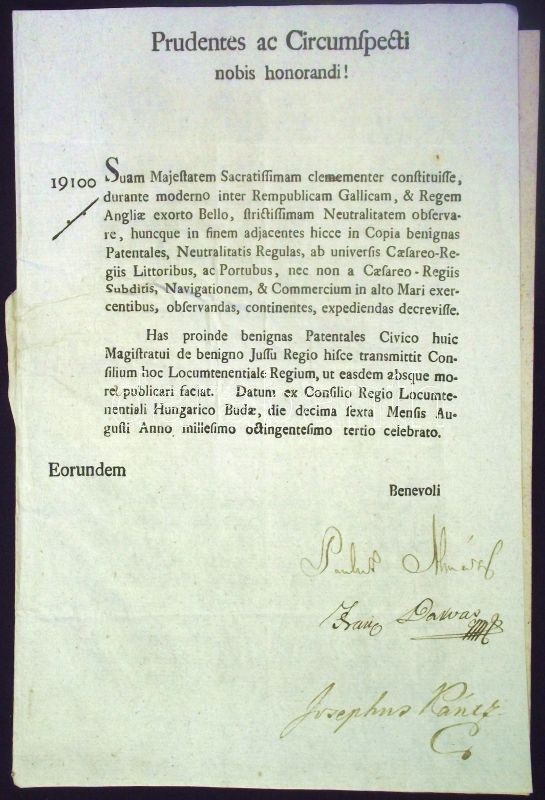 Prudentes ac Circumſpecti
nobis honorandi!
19100
Suam Majeſtatem Sacratiſſimam clemementer conſtituiſſe,
durante moderno inter Rempublicam Gallicam, & Regem
Angliæ exorto Bello, ſtrictiſſimam Neutralitatem obſerva-
re, huncque in finem adjacentes hicce in Copia benignas
Patentales, Neutralitatis Regulas, ab univerſis Cæſareo-Re-
giis Littoribus, ac Portubus, nec non a Cæſareo-Regiis
Subditis, Navigationem, & Commercium in alto Mari exer-
centibus, obſervandas, continentes, expediendas decreviſſe.
Has proinde benignas Patentales Civico huic
Magiſtratui de benigno Juſſu Regio hiſce transmittit Con-
ſilium hoc Locumtenentiale Regium, ut easdem absque mo-
re publicari faciat. Datum ex Conſilio Regio Locumte-
nentiali Hungarico Budæ, die decima ſexta Menſis Au-
guſti Anno milleſimo octingenteſimo tertio celebrato.
Eorundem
Benevoli
Franz Darvas
Josephus